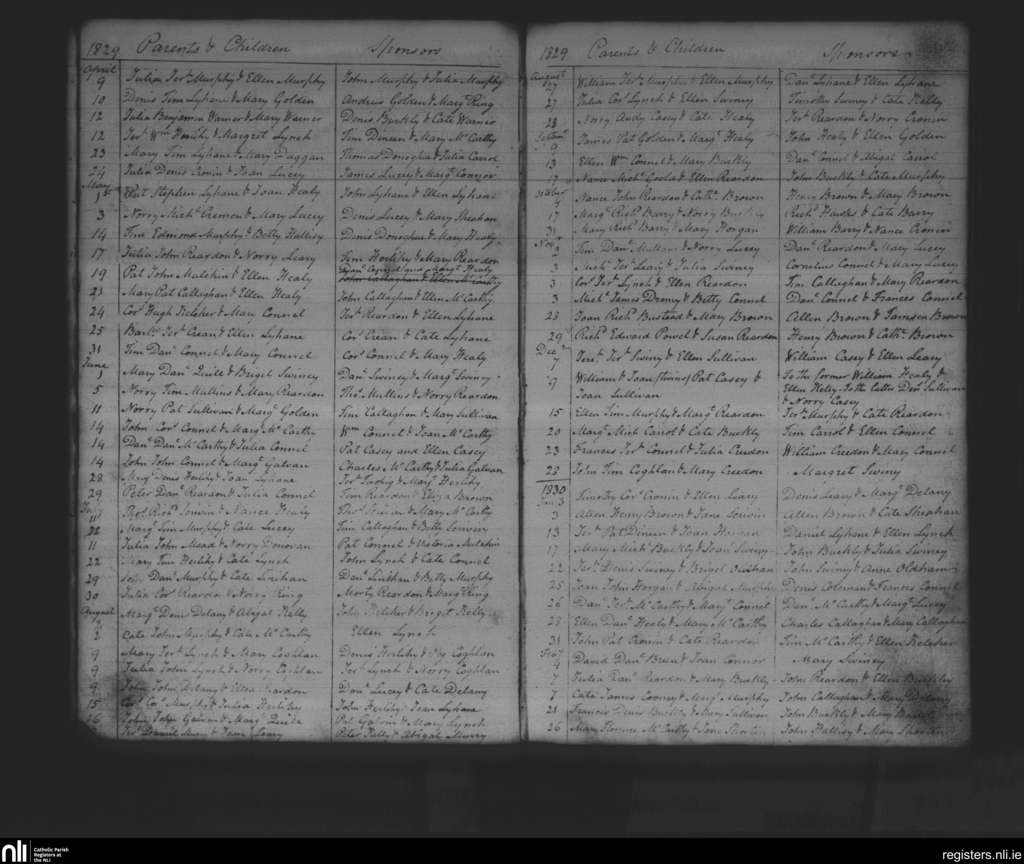 1829 Parents & Children Sponsors
April
9 Julia Jerh Murphy & Ellen Murphy John Murphy & Julia Murphy
10 Denis Tim Lyhane & Mary Golden Andrew Golden & Mary Ring
12 Julia Benjamin Warner & Mary Warner Denis Buckly & Cate Warner
12 Jerh Wm & Margret Lynch Tim Dineen & Mary McCarthy
23 Mary Tim Lyhane & Mary Duggan Thomas Donoghu & Julia Carrol
24 Julia Denis Cronin & Joan Lucey James Lucey & Margt Connor
May
1st Pat Stephen Lyhane & Joan Healy John Lyhane & Ellen Lyhane
3 Norry Michl Cremen & Mary Lucey Denis Lucey & Mary Sheahan
14 Tim Edmond Murphy & Betty Hallisy Denis Donoghue & Mary Healy
17 Julia John Reardon & Norry Leary Tim Herlihy & Mary Reardon
19 Pat John Mulchin & Ellen Healy
23 Mary Pat Callaghan & Ellen Healy John Callaghan & Ellen McCarthy
24 Corns Hugh Keleher & Mary Connel Jerh Reardon & Ellen Lyhane
25 Barthw Jerh Crean & Ellen Lyhane Cors Crean & Cate Lyhane
31 Tim Danl Connel & Mary Connel Cors Connel & Mary Healy
June
1 Mary Danl Quill & Briget Swiney Danl Swiney & Margt Swiney
5 Norry Tim Mullins & Mary Reardon Thos Mullins & Norry Reardon
11 Norry Pat Sullivan & Margt Golden Tim Callaghan & Mary Sullivan
14 John Cors Connel & Mary McCarthy Wm Connel & Joan McCarthy
14 Danl Danl McCarthy & Julia Connel Pat Casey and Ellen Casey
14 John John Connel & Margt Galvan Charles McCarthy & Julia Galvan
28 Margt Denis Herlihy & Joan Lyhane Jerh & Margt Herlihy
29 Peter Danl Reardon & Julia Connel Tim Reardon & Eliza Brown
July
& Nance Healy & Mary McCarthy
Margt Tim Murphy & Cate Lucey Tim Callaghan & Betty
11 Julia John Mead & Norry Donovan Pat Connel & Victoria Mulchin
22 Mary Tim Herlihy & Cate Lynch John Lynch & Cate Connel
29 Danl Murphy & Cate Linihan Danl Linihan & Betty Murphy
30 Julia Cors Reardon & Norry Ring Morty Reardon & Margt Ring
August
Margt Denis Delany & Abigal Kelly John Keleher & Briget Kelly
2 Cate John Murphy & Cate McCarthy Ellen Lynch
9 Mary Jerh Lynch & Coghlan Denis Herlihy & Coghlan
9 Julia John Lynch & Norry Coghlan Jerh Lynch & Norry Coghlan
9 John John Delany & Ellen Reardon Danl Lucey & Cate Delany
15 Cors Murphy & Julia Herlihy John Herlihy & Joan Lyhane
16 John John Galvan & Margt Quill Pat Galvin & Mary Lynch
& Joan Leary Peter Kelly & Abigail Murry
1829 Parents & Children Sponsors
August
27 William Jerh Murphy & Ellen Murphy Danl Lyhane & Ellen Lyhane
27 Julia Cors Lynch & Ellen Swiney Timothy Swiney & Cate Kelly
28 Norry Andy Casey & Cate Healy Jerh Reardon & Norry Cronin
9 James Pat Golden & Margt Healy John Healy & Ellen Golden
13 Ellen Wm Connel & Mary Buckly Danl Connel & Abigal Carrol
17 Nance Michl Goold & Ellen Reardon John Buckly & Cate Murphy
October
4 Nance John Reardon & Cathe Brown Henry Brown & Mary Brown
17 Margt Richd Barry & Norry Buckly Richd Hawkes & Cate Barry
31 Mary Richd Barry & Mary Horgan William Barry & Nance Cronin
Novr
2 Tim Danl Mullane & Norry Lucey Danl Reardon & Mary Lucey
3 Michl Jerh Leary & Julia Swiney Cornelius Connel & Mary Lucey
3 Cors Jerh Lynch & Ellen Reardon Tim Callaghan & Mary Reardon
3 Michl James & Betty Connel Danl Connel & Frances Connel
23 Joan Richd Bustead & Mary Brown Allen Brown & Tomsen Brown
29 Richd Edward Powel & Susan Reardon Henry Brown & Cathe Brown
Decr
7 Jerh Jerh Swiny & Ellen Sullivan William Casey & Ellen Leary
9 William & Joan (twins) Pat Casey & To the former William Healy &
Joan Sullivan Ellen Kelly. To the latter Denis Sullivan
& Norry Casey
15 Ellen Tim Murphy & Margt Reardon Jerh Murphy & Cate Reardon
20 Margt Mich Carrol & Cate Buckly Tim Carrol & Ellen Connel
23 Frances Jerh Connel & Julia Creedon William Creedon & Mary Connel
28 John Tim Coghlan & Mary Creedon Margret Swiny
1830
Jan
3 Timothy Cors Cronin & Ellen Leary Denis Leary & Margt Delany
3 Allen Henry Brown & Jane Allen Brown & Cate Sheahan
13 Jerh Pat Dineen & Joan Daniel Lyhane & Ellen Lynch
17 Mary Michl Buckly & Joan Swiny John Buckly & Julia Swiney
22 Jerh Denis Swiney & Briget Oldham John Swiny & Anne Oldham
25 Joan John Horgan & Abigal Murphy Denis Coleman & Frances Connel
26 Danl Jerh McCarthy & Margt Connel Danl McCarthy & Margt Lucey
28 Ellen Danl Healy & Mary McCarthy Charles Callaghan & Mary Callaghan
31 John Pat Cronin & Cate Reardon Tim McCarthy & Ellen Keleher
Feby
4 David Danl Breen & Joan Connor Mary Swiney
7 Julia Danl Reardon & Mary Buckly John Reardon & Ellen Buckley
7 Cate James Cooney & Margt Murphy John Callaghan & Mary Delany
21 Francis Denis Buckly & Mary Sullivan John Buckly & Mary
26 Mary Florence McCarthy & Jane Shorten John Hallisy & Mary Shorten
nli Catholic Parish
Registers at
the NLI
registers.nli.ie